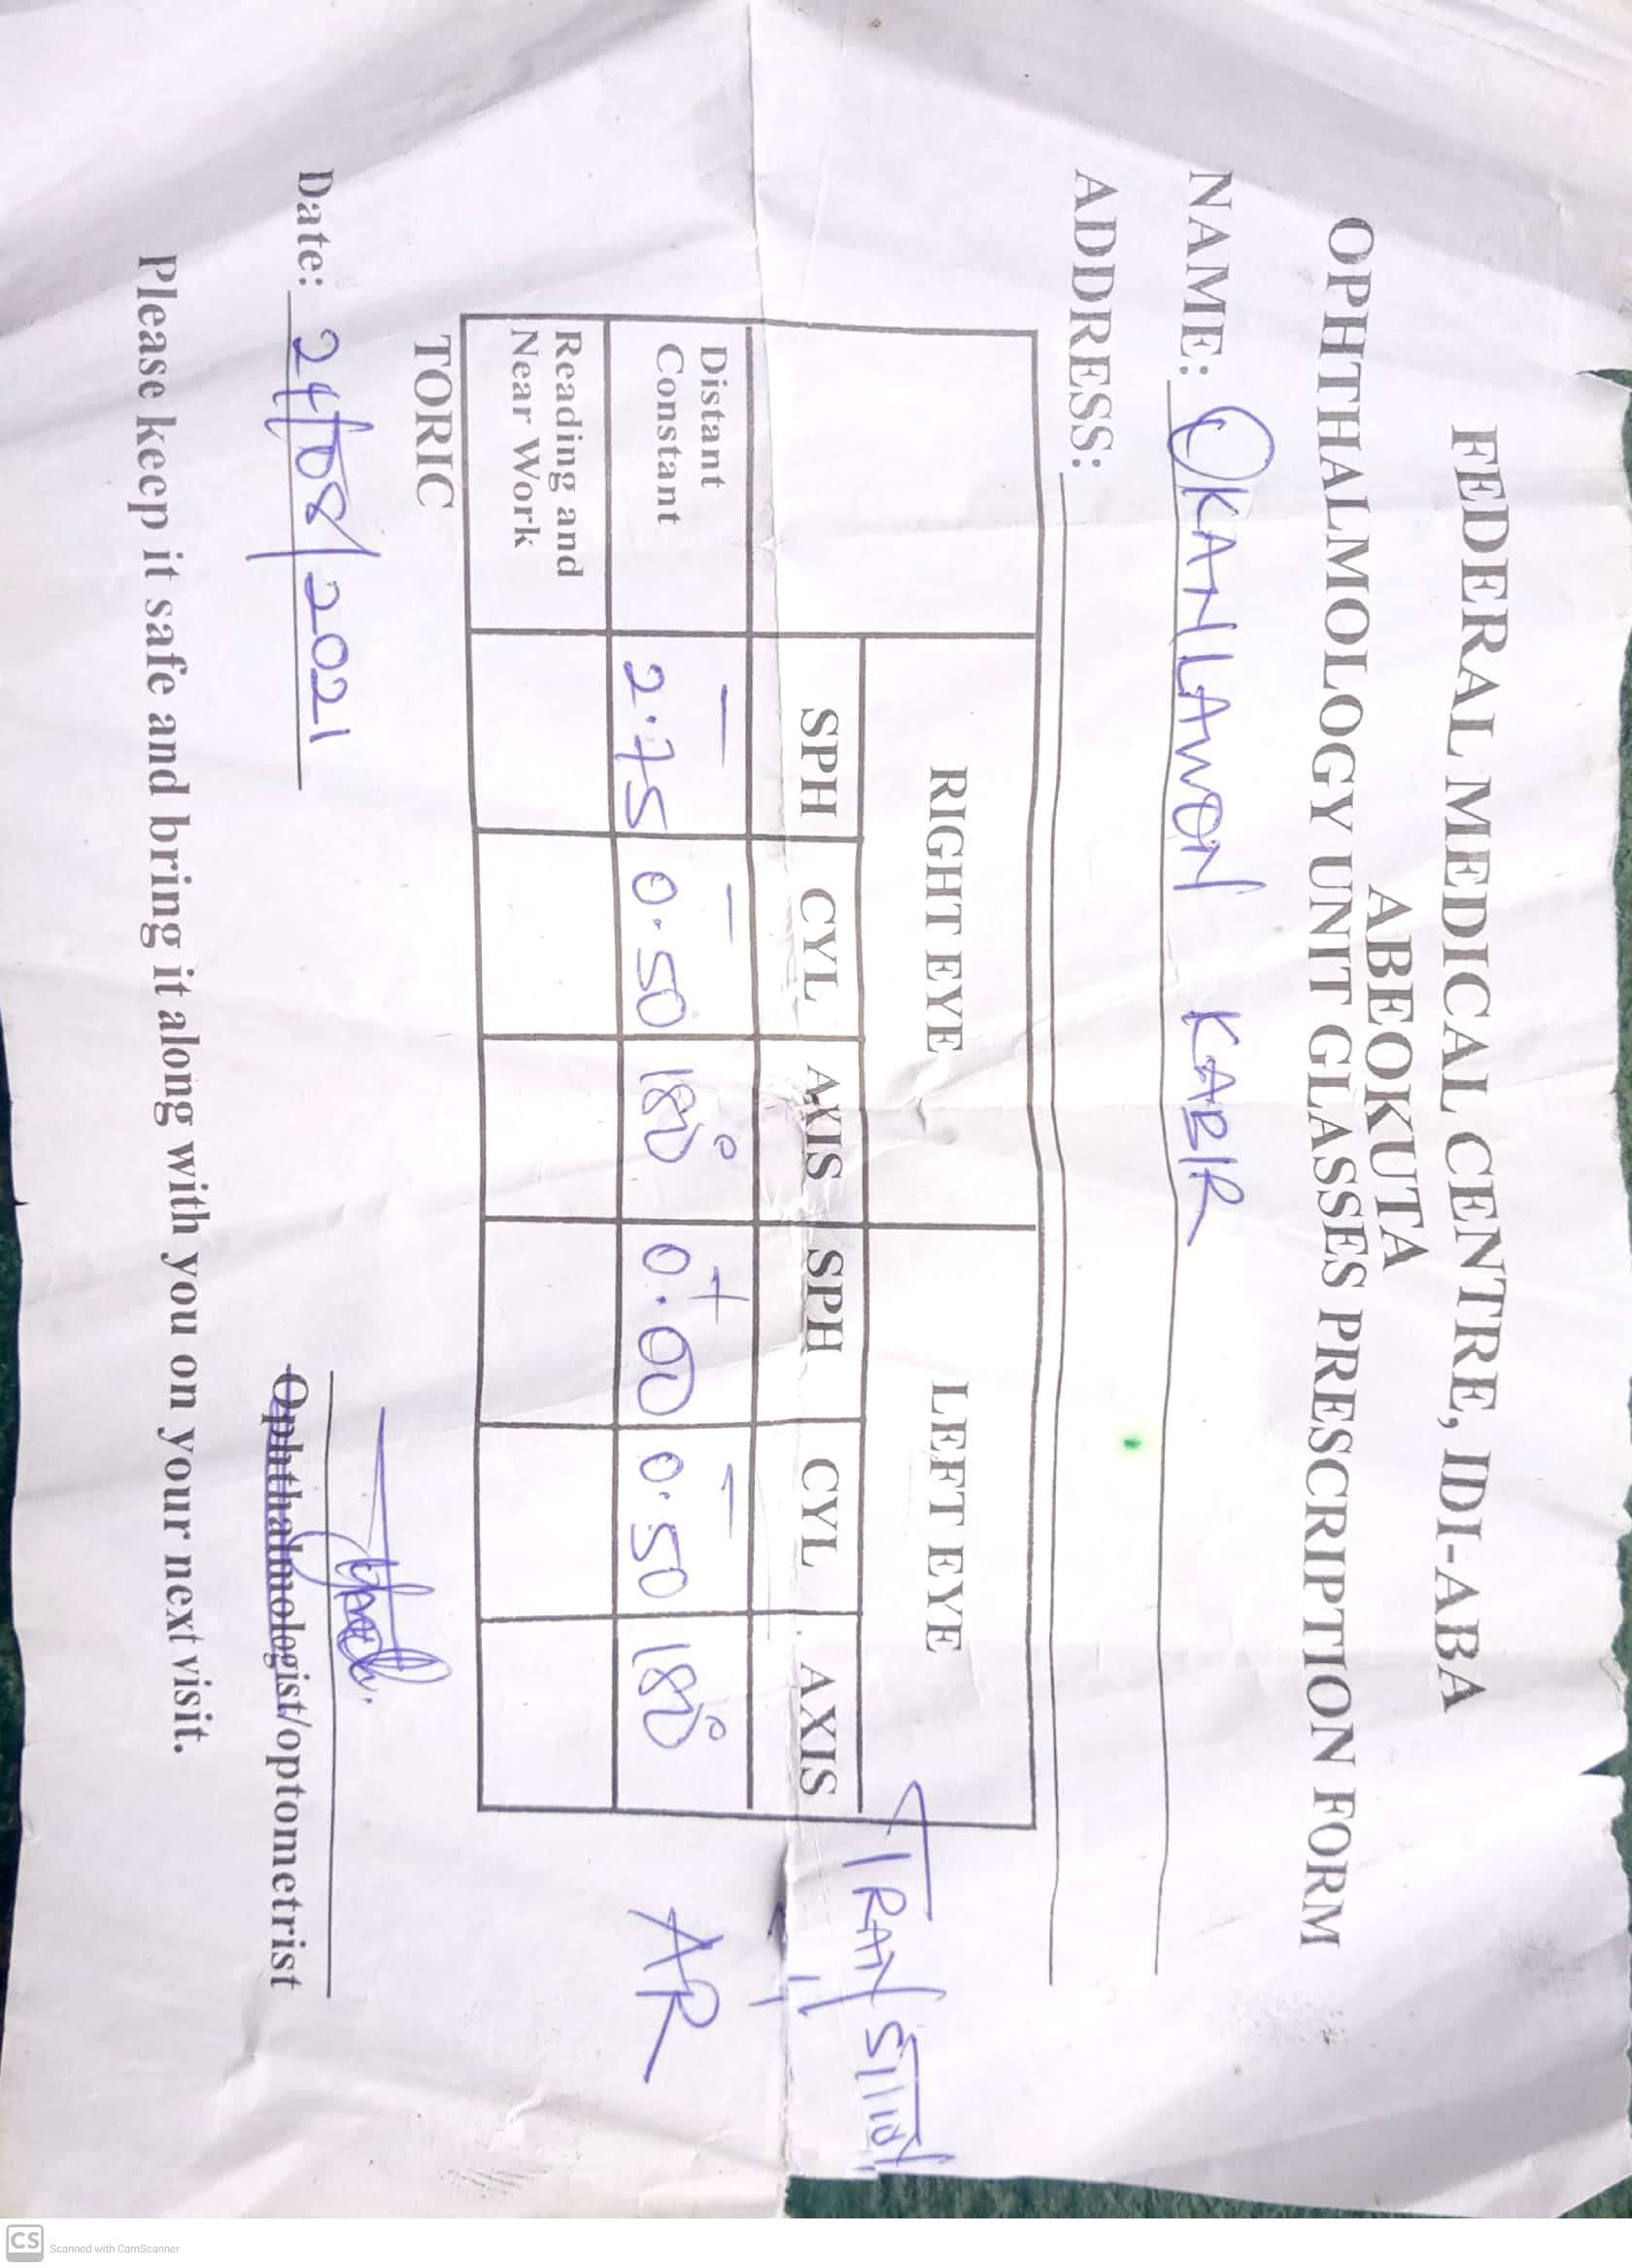 FEDERAL MEDICAL CENTRE, IDI-ABA
ABEOKUTA
OPHTHALMOLOGY UNIT GLASSES PRESCRIPTION FORM
NAME: OKANLAWON KABIR
ADDRESS:
RIGHT EYE LEFT EYE
SPH CYL AXIS SPH CYL AXIS
Distant Constant -2.75 -0.50 180° +0.00 -0.50 180°
Reading and Near Work
TORIC
TRANSITION
AR
Date: 24/08/2021
Ophthalmologist/optometrist
Please keep it safe and bring it along with you on your next visit.
CS Scanned with CamScanner